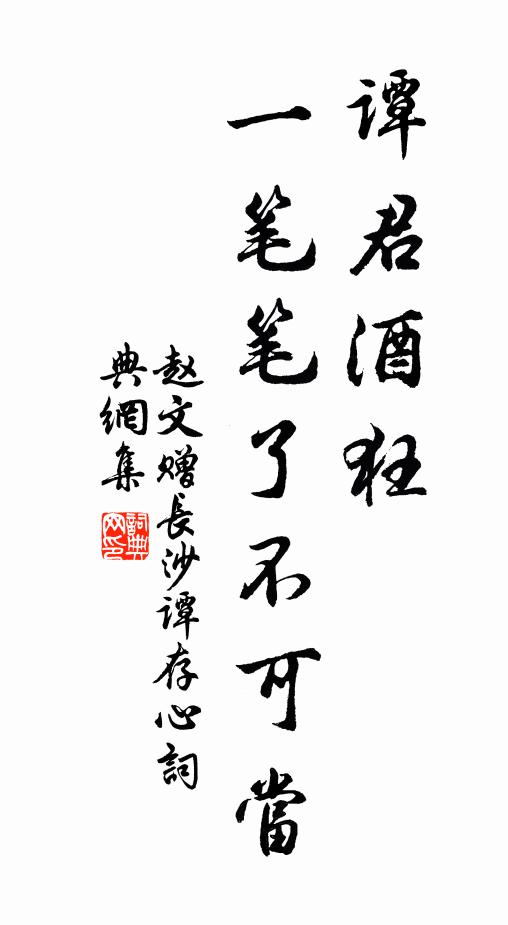 谭君酒狂
一笔笔了不可當
赵文赠長沙谭存心詞
典網集
詞典
网印